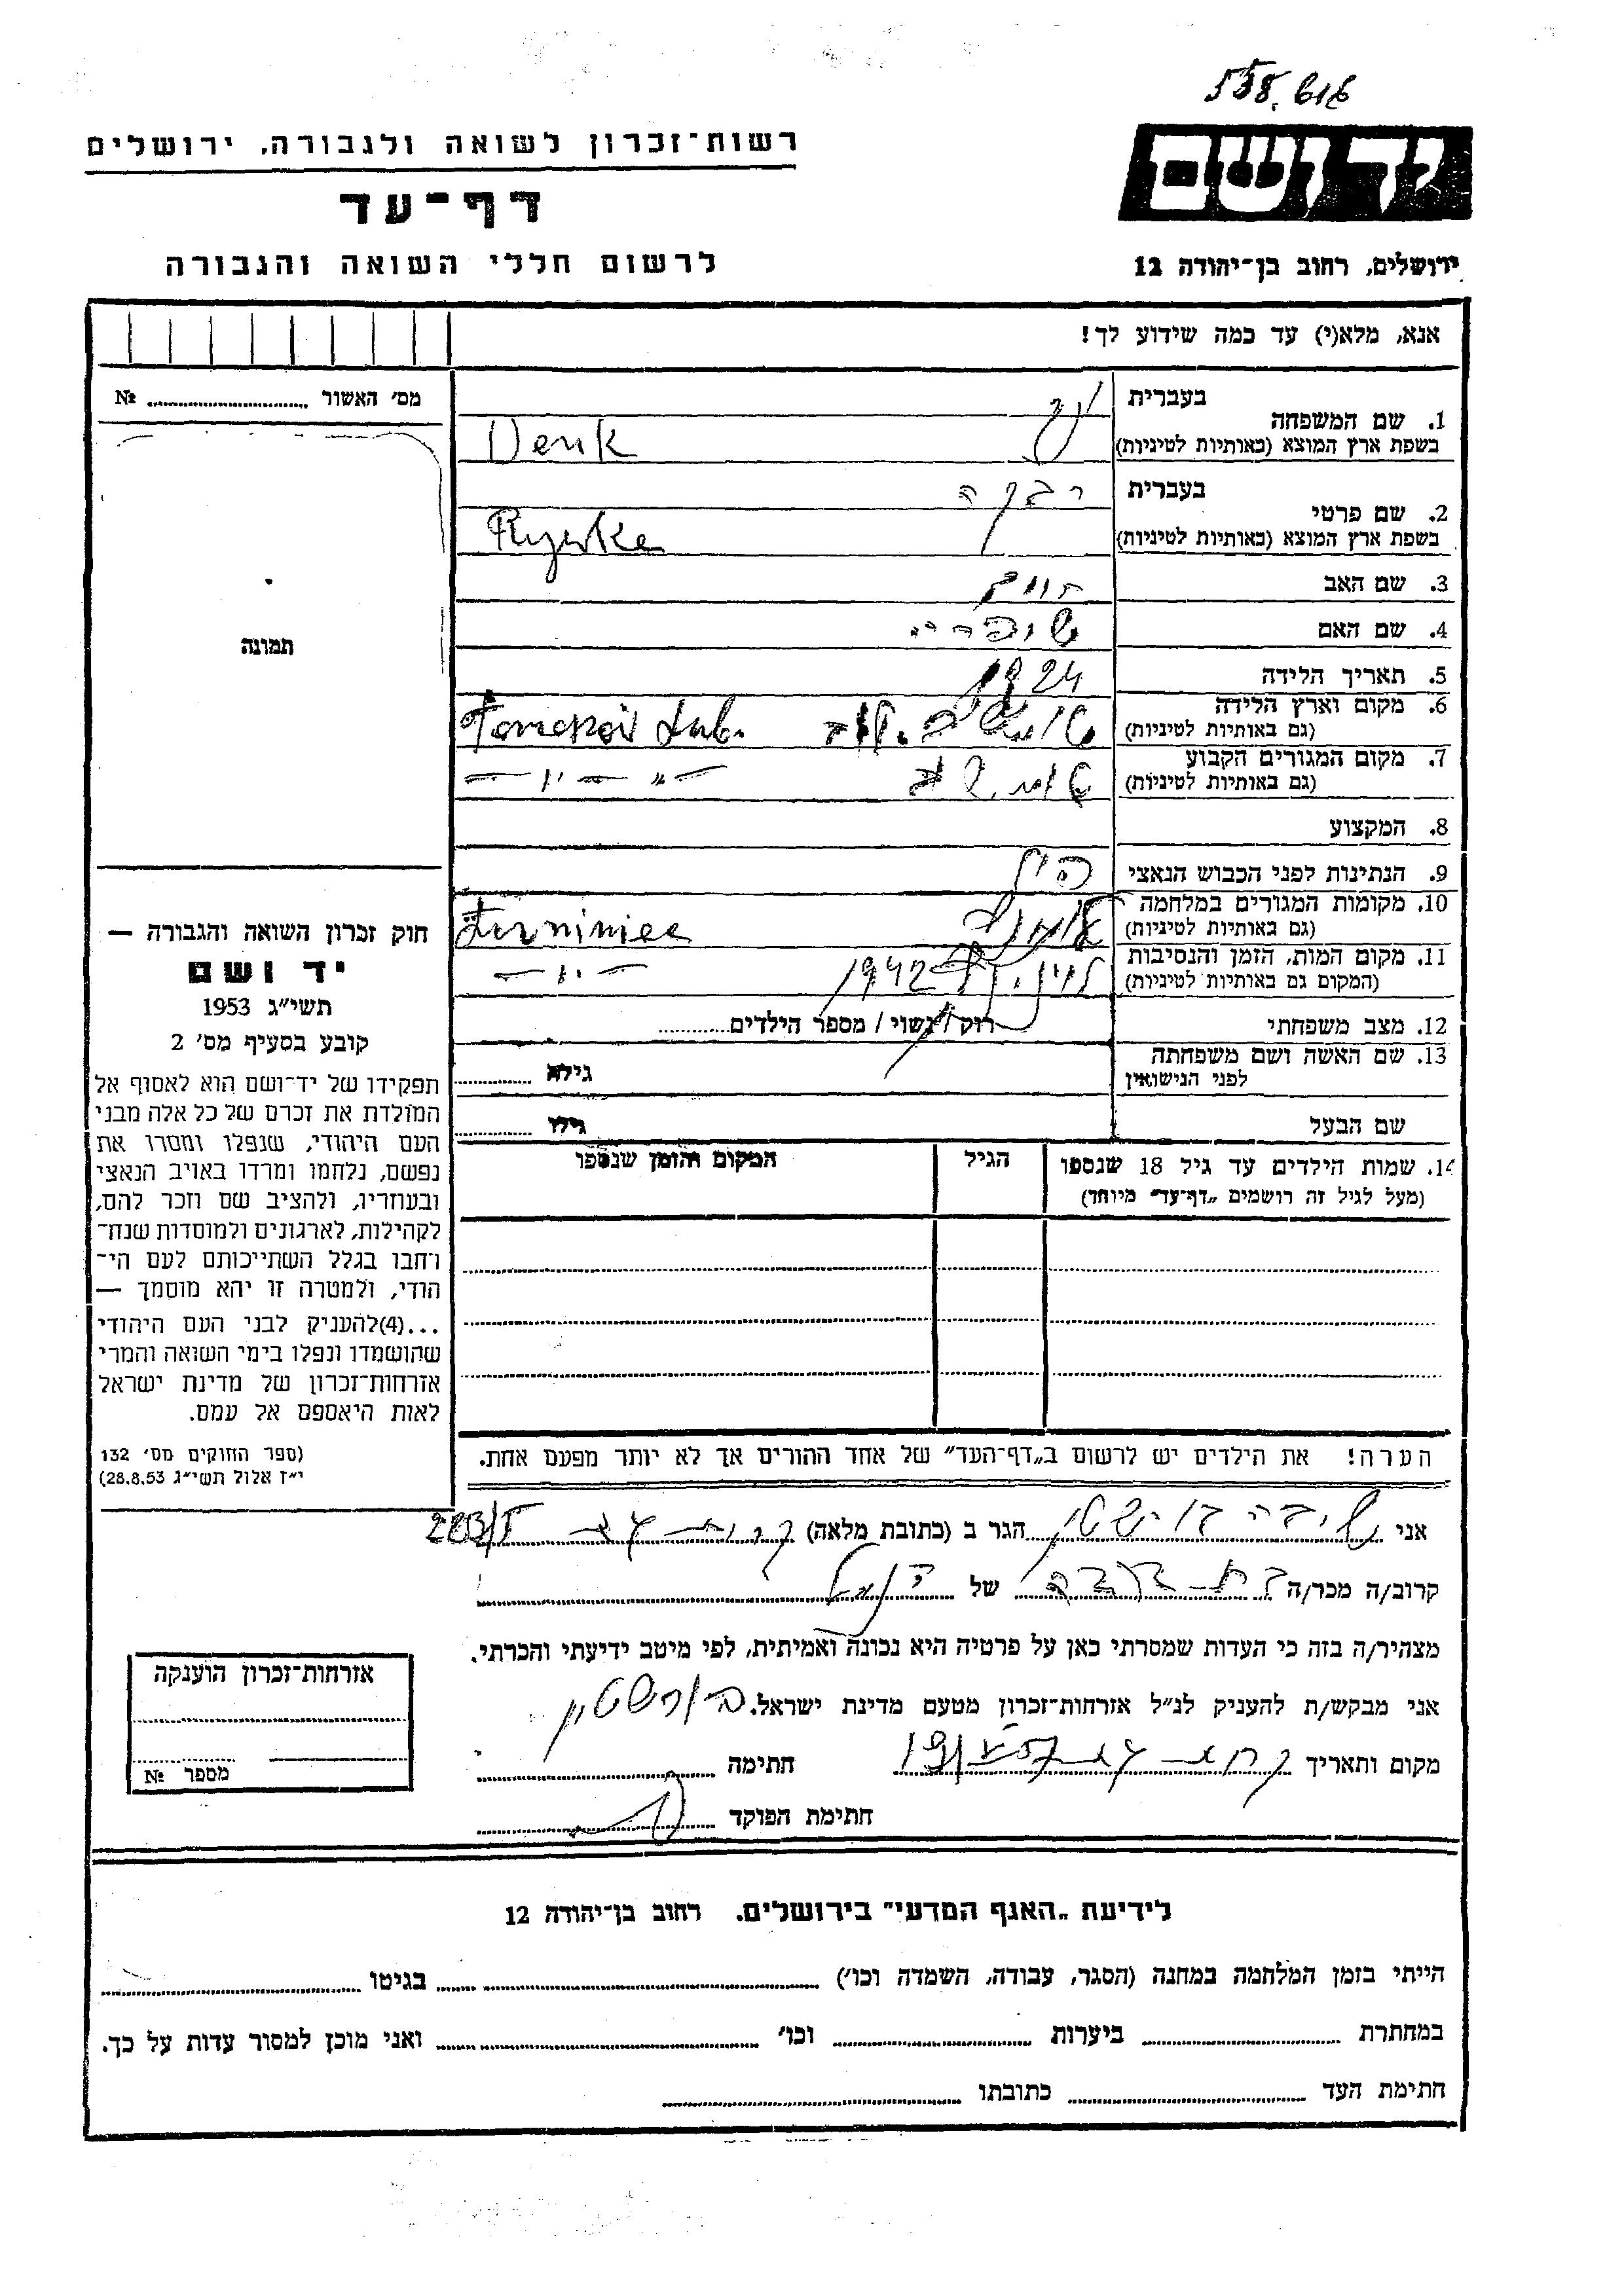 558.616
רשות־זכרון לשואה ולגבורה, ירושלים
יד ושם
דף־עד
ירושלים, רחוב בן־יהודה 12
לרשום חללי השואה והגבורה
אנא, מלא(י) עד כמה שידוע לך!
מס׳ האשור № ..........
תמונה
1. שם המשפחה
בעברית
בשפת ארץ המוצא (באותיות לטיניות) Denk
2. שם פרטי
בעברית רבקה
בשפת ארץ המוצא (באותיות לטיניות) Rywke
3. שם האב חיים
4. שם האם
5. תאריך הלידה 1924
6. מקום וארץ הלידה Lub.
(גם באותיות לטיניות)
7. מקום המגורים הקבוע
(גם באותיות לטיניות) — " — " —
8. המקצוע
9. הנתינות לפני הכבוש הנאצי
10. מקומות המגורים במלחמה
(גם באותיות לטיניות)
11. מקום המות, הזמן והנסיבות 1942
(המקום גם באותיות לטיניות) — " —
12. מצב משפחתי רוק / נשוי / מספר הילדים..........
13. שם האשה ושם משפחתה
לפני הנישואין גילה ..........
שם הבעל גילו ..........
14. שמות הילדים עד גיל 18 שנספו
(מעל לגיל זה רושמים „דף־עד״ מיוחד)
הגיל
המקום והזמן שנספו
חוק זכרון השואה והגבורה —
יד ושם
תשי״ג 1953
קובע בסעיף מס׳ 2
תפקידו של יד־ושם הוא לאסוף אל
המולדת את זכרם של כל אלה מבני
העם היהודי, שנפלו ומסרו את
נפשם, נלחמו ומרדו באויב הנאצי
ובעוזריו, ולהציב שם וזכר להם,
לקהילות, לארגונים ולמוסדות שנח־
רבו בגלל השתייכותם לעם הי־
הודי, ולמטרה זו יהא מוסמך —
...(4)להעניק לבני העם היהודי
שהושמדו ונפלו בימי השואה והמרי
אזרחות־זכרון של מדינת ישראל
לאות היאספם אל עמם.
(ספר החוקים מס׳ 132
י״ז אלול תשי״ג 28.8.53)
הערה! את הילדים יש לרשום ב„דף־העד״ של אחד ההורים אך לא יותר מפעם אחת.
אני הגר ב (כתובת מלאה) קרית גת
קרוב/ה מכר/ה של
מצהיר/ה בזה כי העדות שמסרתי כאן על פרטיה היא נכונה ואמיתית, לפי מיטב ידיעתי והכרתי.
אני מבקש/ת להעניק לנ״ל אזרחות־זכרון מטעם מדינת ישראל.
מקום ותאריך קרית גת חתימה
חתימת הפוקד
אזרחות־זכרון הוענקה
מספר №
לידיעת „האגף המדעי״ בירושלים. רחוב בן־יהודה 12
הייתי בזמן המלחמה במחנה (הסגר, עבודה, השמדה וכו׳) .......... בגיטו ..........
במחתרת .......... ביערות .......... וכו׳ .......... ואני מוכן למסור עדות על כך.
חתימת העד .......... כתובתו ..........